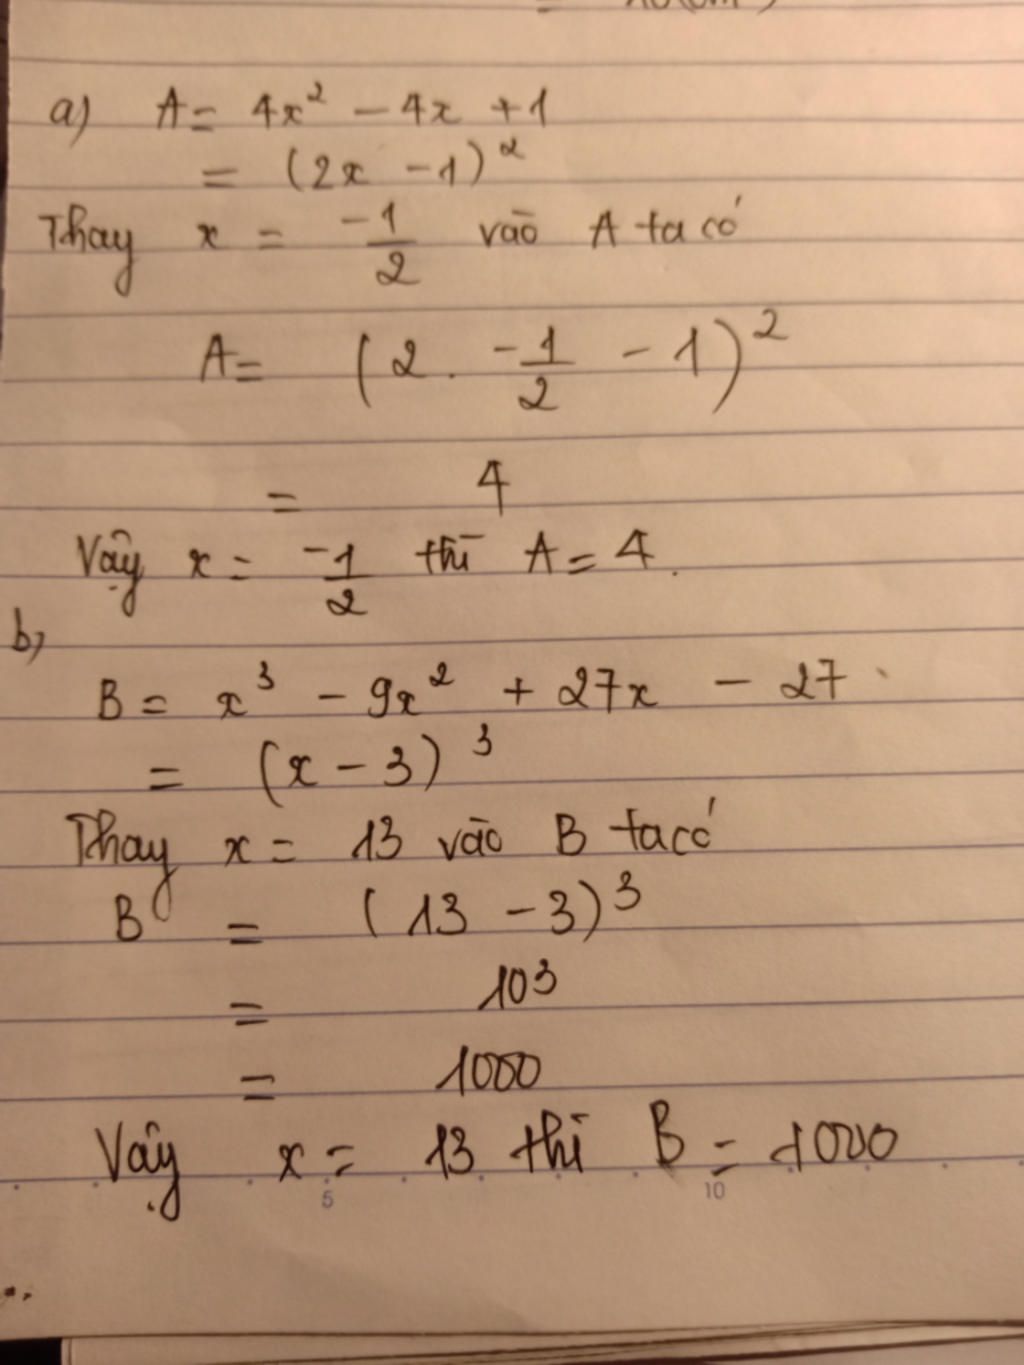 a) A = 4x² - 4x + 1
= (2x - 1)²
Thay x = -1/2 vào A ta có
A = (2 . -1/2 - 1)²
= 4
Vậy x = -1/2 thì A = 4.
b)
B = x³ - 9x² + 27x - 27
= (x - 3)³
Thay x = 13 vào B ta có
B = (13 - 3)³
= 10³
= 1000
Vậy x = 13 thì B = 1000
5 10